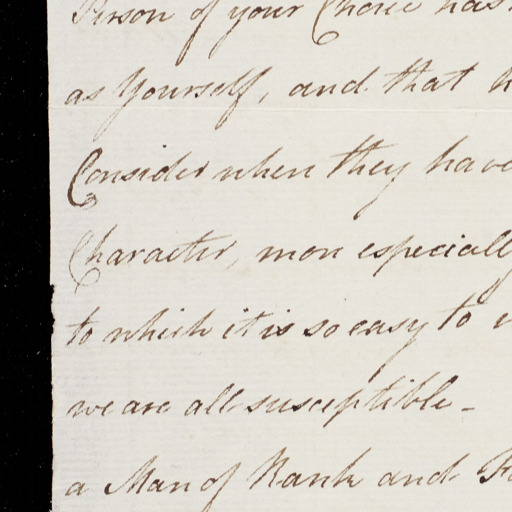 Person of your Choice has
as Yourself, and that
Consider when they have
Character, more especially
to which it is so easy to
we are all susceptible -
a Man of Rank and